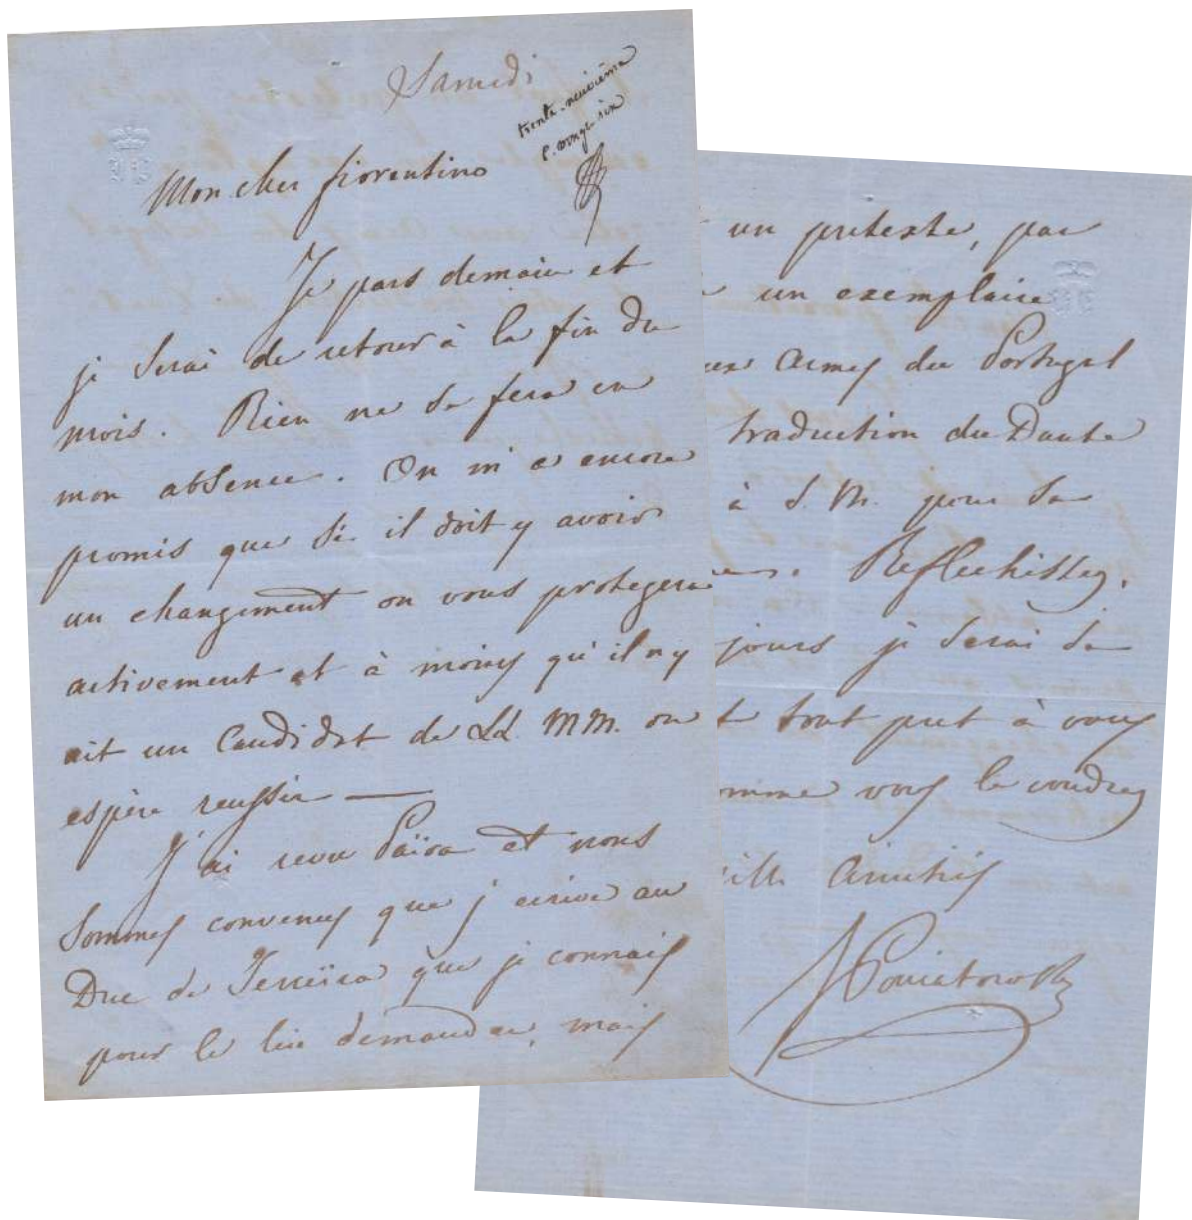 Samedi
trente-neuvième
Mon cher fiorentino
Je pars demain et
je serai de retour à la fin du
mois. Rien ne se fera en
mon absence. On m'a encore
promis que si il doit y avoir
un changement on vous protegera
activement et à moins qu'il n'y
ait un Candidat de LL. MM. on
espère reussir —
J'ai revu Païva et nous
sommes convenus que j'ecrive au
Duc de Terceira que je connais
pour le lui demander, mais
un pretexte, par
un exemplaire
aux Armes du Portugal
traduction du Dante
à S. M. pour sa
Reflechissez.
jours je serai de
t tout pret à vous
omme vous le voudrez
ille Amitiés
J Poniatowski